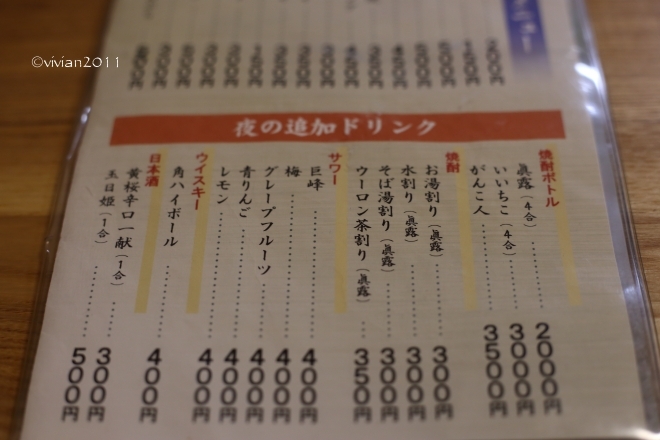 ©vivian2011
ニュー
夜の追加ドリンク
焼酎ボトル
眞露(4合)‥‥‥2000円
いいちこ(4合)‥‥‥3000円
がんこ人‥‥‥3500円
焼酎
お湯割り(眞露)‥‥‥300円
水割り(眞露)‥‥‥300円
そば湯割り(眞露)‥‥‥300円
ウーロン茶割り(眞露)‥‥‥350円
サワー
巨峰‥‥‥400円
梅‥‥‥400円
グレープフルーツ‥‥‥400円
青りんご‥‥‥400円
レモン‥‥‥400円
ウイスキー
角ハイボール‥‥‥400円
日本酒
黄桜辛口一献(1合)‥‥‥300円
玉日姫(1合)‥‥‥500円